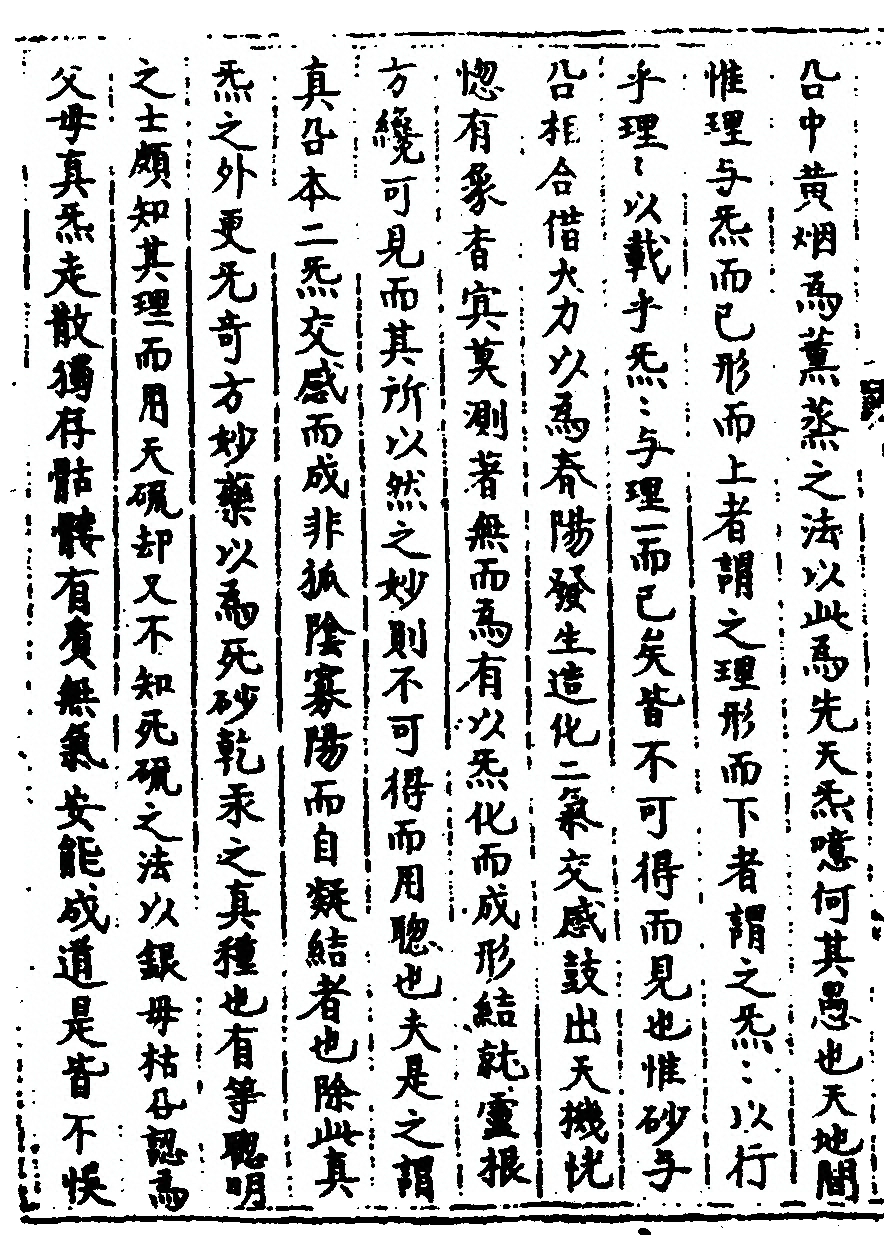 㕣中黄烟為薫蒸之法以此為先天炁噫何其愚也天地間
惟理与炁而已形而上者謂之理形而下者謂之炁〻以行
乎理〻以載乎炁〻与理一而已矣皆不可得而見也惟砂与
㕣相合借火力以為春陽發生造化二氣交感鼓出天機恍
惚有象杳㝠莫測著無而為有以炁化而成形結就靈根
方纔可見而其所以然之妙則不可得而用聰也夫是之謂
真㕣本二炁交感而成非孤陰寡陽而自凝結者也除此真
炁之外更旡奇方妙藥以為死砂乾汞之真種也有等聰明
之士頗知其理而用天硫却又不知死硫之法以銀母枯㕣認為
父母真炁走散獨存骷髏有質無氣安能成道是皆不悞